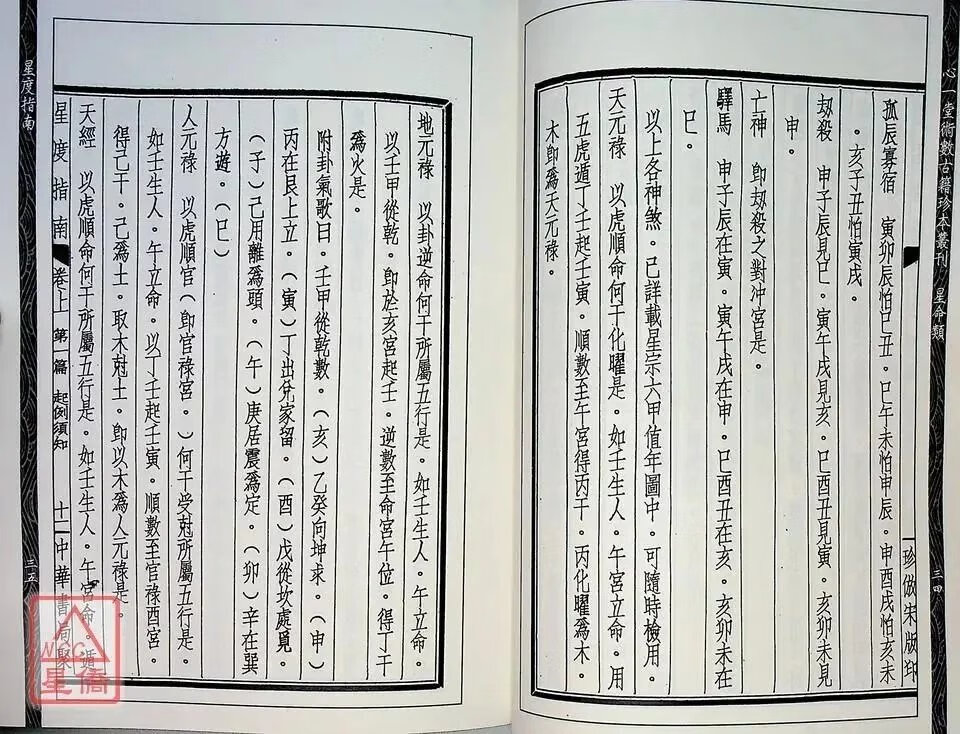 心一堂術數古籍珍本叢刊 星命類
三四
珍倣宋版印
孤辰寡宿 寅卯辰怕巳丑．巳午未怕申辰．申酉戌怕亥未
．亥子丑怕寅戌．
刼殺 申子辰見巳．寅午戌見亥．巳酉丑見寅．亥卯未見
申．
亡神 卽刼殺之對沖宮是．
驛馬 申子辰在寅．寅午戌在申．巳酉丑在亥．亥卯未在
巳．
以上各神煞．已詳載星宗六甲值年圖中．可隨時檢用．
天元祿 以虎順命何干化曜是．如壬生人．午宮立命．用
五虎遁丁壬起壬寅．順數至午宮得丙干．丙化曜爲木
木卽爲天元祿．
地元祿 以卦逆命何干所屬五行是．如壬生人．午立命．
以壬甲從乾．卽於亥宮起壬．逆數至命宮午位．得丁干
爲火是．
附卦氣歌曰．壬甲從乾數．（亥）乙癸向坤求．（申）
丙在艮上立．（寅）丁出兌家留．（酉）戊從坎處覓．
（子）己用離爲頭．（午）庚居震爲定．（卯）辛在巽
方遊．（巳）
人元祿 以虎順官（卽官祿宮．）何干受尅所屬五行是．
如壬生人．午立命．以丁壬起壬寅．順數至官祿酉宮．
得己干．己爲土．取木尅土．卽以木爲人元祿是．
天經 以虎順命何干所屬五行是．如壬生人．午宮命．遁
星度指南 卷上 第一篇 起例須知 十一 中華書局聚
星度指南
三五
WSG
星僑